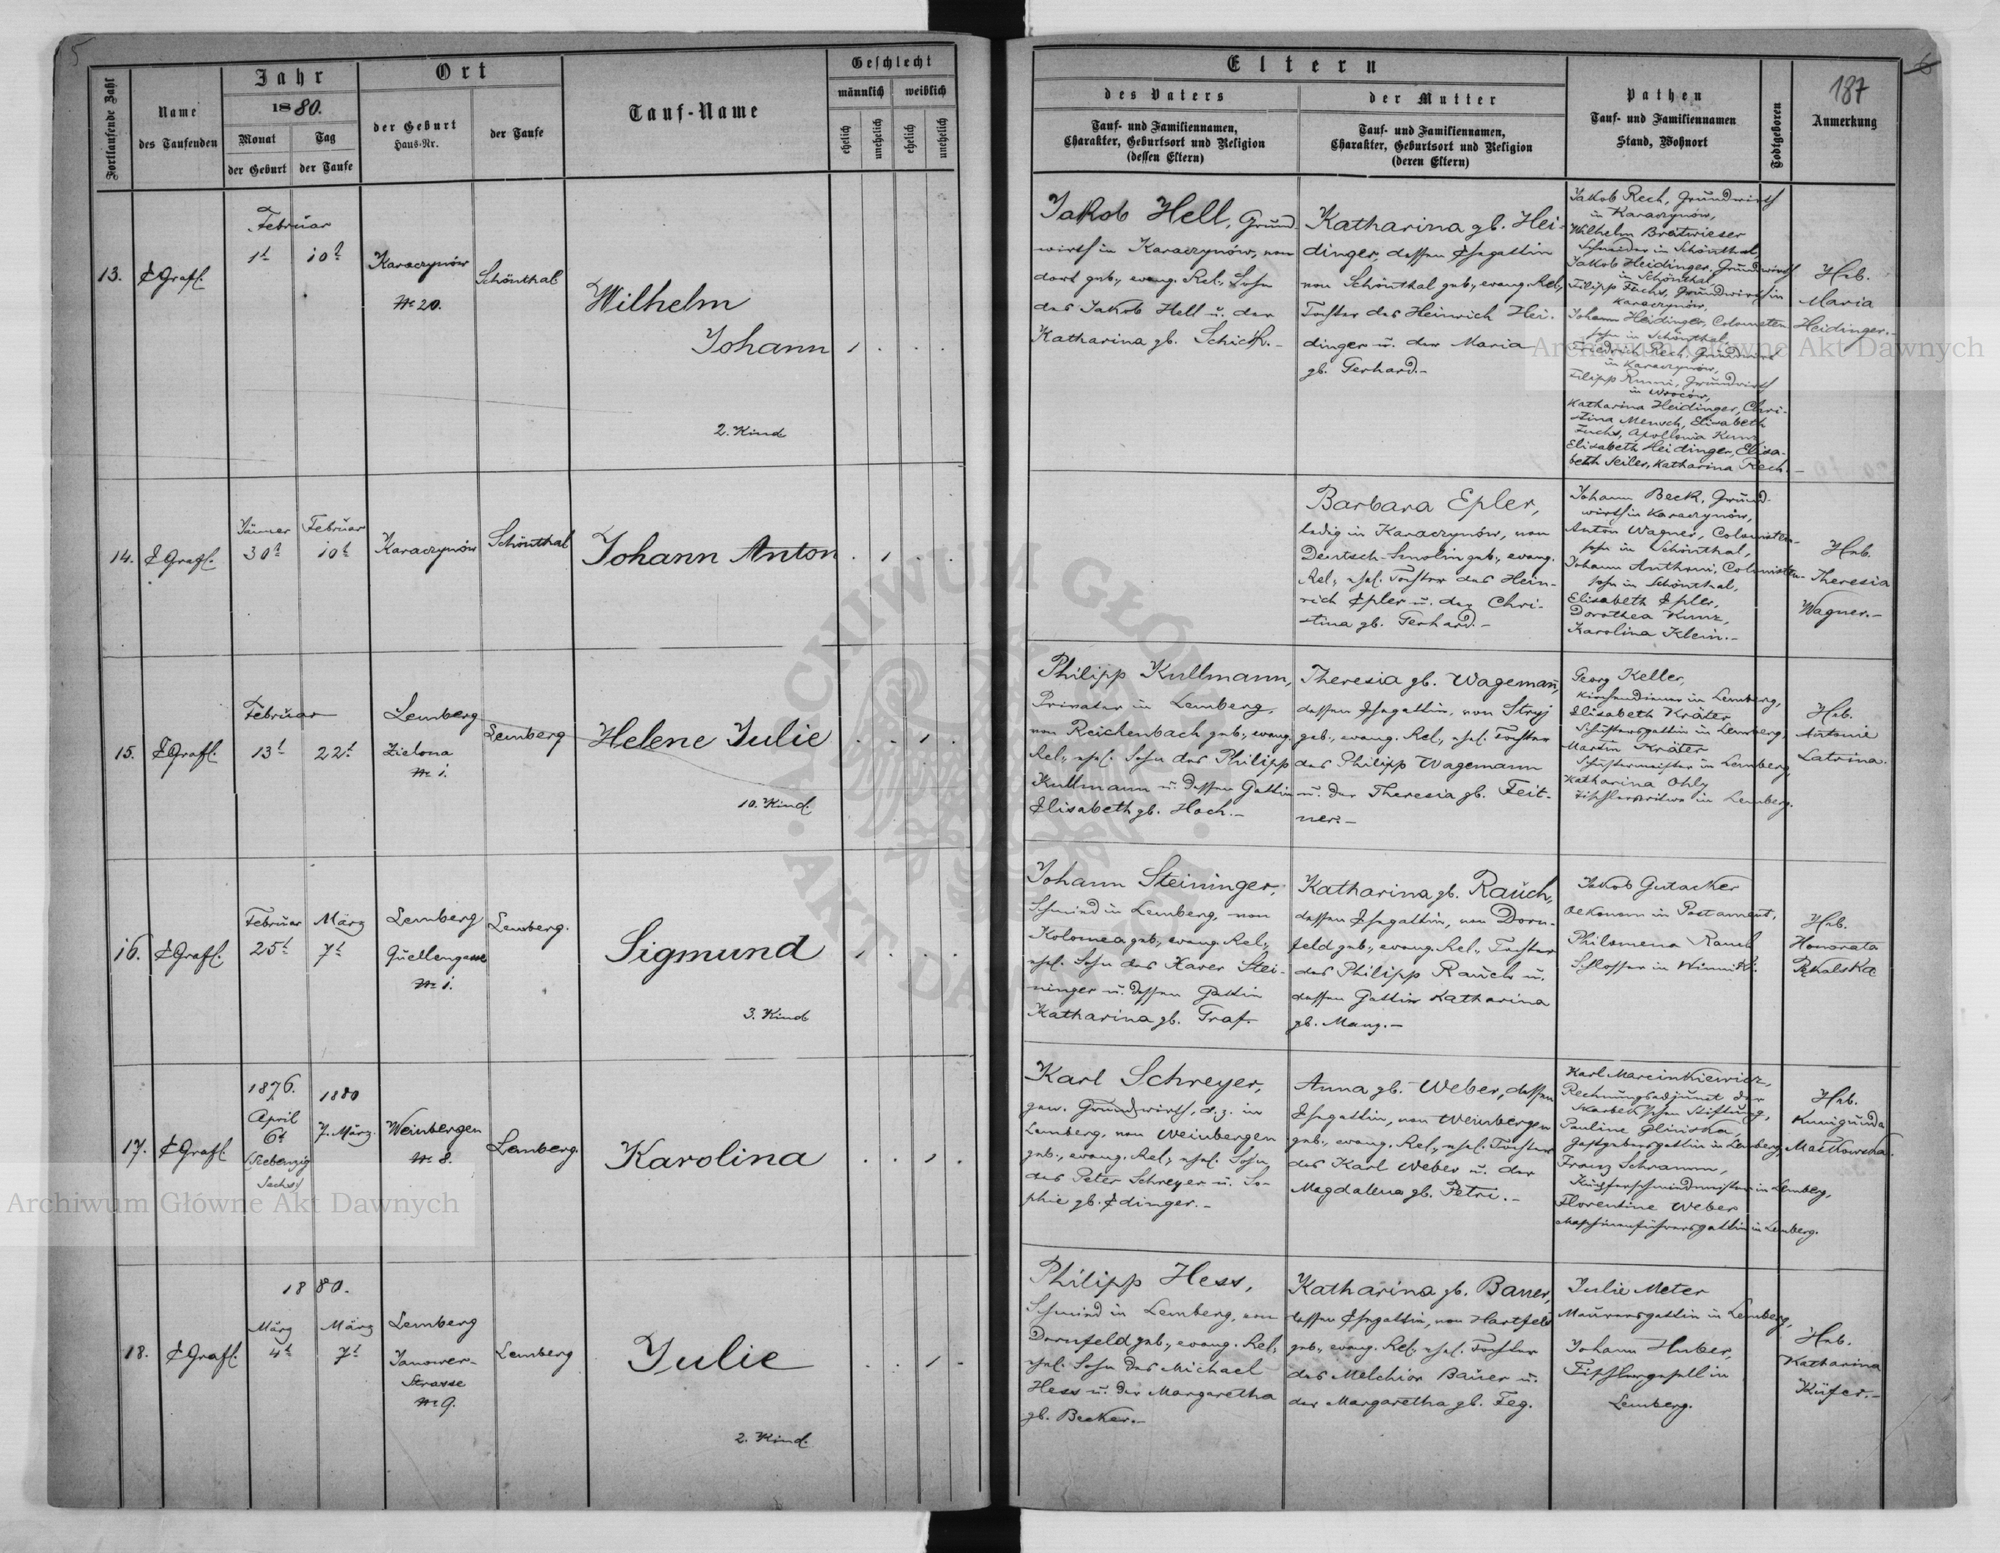 5
Fortlaufende Zahl
Name
des Taufenden
Jahr
1880.
Monat
Tag
der Geburt
der Taufe
Ort
der Geburt
Haus-Nr.
der Taufe
Tauf-Name
Geschlecht
männlich
weiblich
ehelich
unehelich
ehelich
unehelich
13.
EGrafl.
Februar
1t
10t
Karaczynów
№ 20.
Schönthal
Wilhelm
Johann
2. Kind
14.
EGrafl.
Jänner
30t
Februar
10t
Karaczynów
Schönthal
Johann Anton
15.
EGrafl.
Februar
13t
22t
Lemberg
Zielona
№ 1.
Lemberg
Helene Julie
10. Kind
16.
EGrafl.
Februar
25t
März
7t
Lemberg
Quellengasse
№ 1.
Lemberg.
Sigmund
3. Kind
17.
EGrafl.
1876.
April
6t
(Siebenzig
Sechs)
1880
7. März.
Weinbergen
№ 8.
Lemberg.
Karolina
18.
EGrafl.
1880.
März
4t
März
7t
Lemberg
Janower-
Strasse
№ 9.
Lemberg
Julie
2. Kind.
6
187
Eltern
des Vaters
Tauf- und Familiennamen,
Charakter, Geburtsort und Religion
(dessen Eltern)
der Mutter
Tauf- und Familiennamen,
Charakter, Geburtsort und Religion
(deren Eltern)
Pathen
Tauf- und Familiennamen
Stand, Wohnort
Todtgeboren
Anmerkung
Jakob Hell, Grund-
wirth in Karaczynów, von
dort geb., evang. Rel., Sohn
des Jakob Hell u. der
Katharina gb. Schick.-
Katharina gb. Hei-
dinger, dessen Ehegattin
von Schönthal geb., evang. Rel.,
Tochter des Heinrich Hei-
dinger u. der Maria
gb. Gerhard.-
Jakob Rech, Grundwirth
in Karaczynów,
Wilhelm Bratwieser
Schneider in Schönthal,
Jakob Heidinger, Grundwirth
in Schönthal
Filipp Fuchs, Grundwirth in
Karaczynów,
Johann Heidinger, Colonisten-
sohn in Schönthal,
Friedrich Rech, Grundwirt
in Karaczynów,
Filipp Rumi, Grundwirth
in Wrocow,
Katharina Heidinger, Chri-
stina Mensch, Elisabeth
Fuchs, Apollonia Kunz
Elisabeth Heidinger, Elisa-
beth Seiler, Katharina Rech.-
Heb.
Maria
Heidinger.-
Barbara Epler,
ledig in Karaczynów, von
Deutsch-Smolin geb., evang.
Rel., ehel. Tochter des Hein-
rich Epler u. der Chri-
stina gb. Gerhard.-
Johann Beck, Grund-
wirth in Karaczynów,
Anton Wagner, Colonisten-
sohn in Schönthal,
Johann Anthoni, Colonisten-
sohn in Schönthal,
Elisabeth Epler,
Dorothea Kunz,
Karolina Klein.-
Heb.
Theresia
Wagner.-
Philipp Kullmann,
Privater in Lemberg,
von Reichenbach geb., evang.
Rel., ehel. Sohn des Philipp
Kullmann u. dessen Gattin
Elisabeth gb. Hoch.-
Theresia gb. Wagemann,
dessen Ehegattin, von Stryj
geb., evang. Rel., ehel. Tochter
des Philipp Wagemann
u. der Theresia gb. Feit-
ner.-
Georg Keller,
Kirchendiener in Lemberg,
Elisabeth Kräter
Schustersgattin in Lemberg,
Martin Kräter
Schustermeister in Lemberg,
Katharina Ohly
Tischlerswitwe in Lemberg.
Heb.
Antonie
Latrina.
Johann Steininger,
Schmied in Lemberg, von
Kolomea geb., evang. Rel.,
ehel. Sohn des Xaver Stei-
ninger u. dessen Gattin
Katharina gb. Graf.
Katharina gb. Rauch,
dessen Ehegattin, von Dorn-
feld geb., evang. Rel., Tochter
des Philipp Rauch u.
dessen Gattin Katharina
gb. Mang.-
Jakob Gutacker
Oekonom in Postament,
Philomena Rauch
Schlosser in Winniki.
Heb.
Honorata
Pekalska
Karl Schreyer,
gew. Grundwirth, d.z. in
Lemberg, von Weinbergen
geb., evang. Rel., ehel. Sohn
des Peter Schreyer u. So-
phie gb. Edinger.-
Anna gb. Weber, dessen
Ehegattin, von Weinbergen
geb., evang. Rel., ehel. Tochter
des Karl Weber u. der
Magdalena gb. Petri.-
Karl Marcinkiewicz,
Rechnungsadjunct der
Skarbek'schen Stiftung,
Pauline Glinska,
Gastgebersgattin in Lemberg,
Franz Schramm,
Kupferschmiedmeister in Lemberg,
Florentine Weber
Maschinenführersgattin in Lemberg.
Heb.
Kunigunda
Maćkowska.
Philipp Hess,
Schmied in Lemberg, von
Dornfeld geb., evang. Rel.,
ehel. Sohn des Michael
Hess u. der Margaretha
gb. Becker.-
Katharina gb. Bauer,
dessen Ehegattin, von Hartfeld
geb., evang. Rel., ehel. Tochter
des Melchior Bauer u.
der Margaretha gb. Feg.
Julie Meter
Maurersgattin in Lemberg,
Johann Huber,
Tischlergesell in
Lemberg.
Heb.
Katharina
Küfer.-
Archiwum Główne Akt Dawnych
Archiwum Główne Akt Dawnych
ARCHIWUM GŁÓWNE AKT DAWNYCH